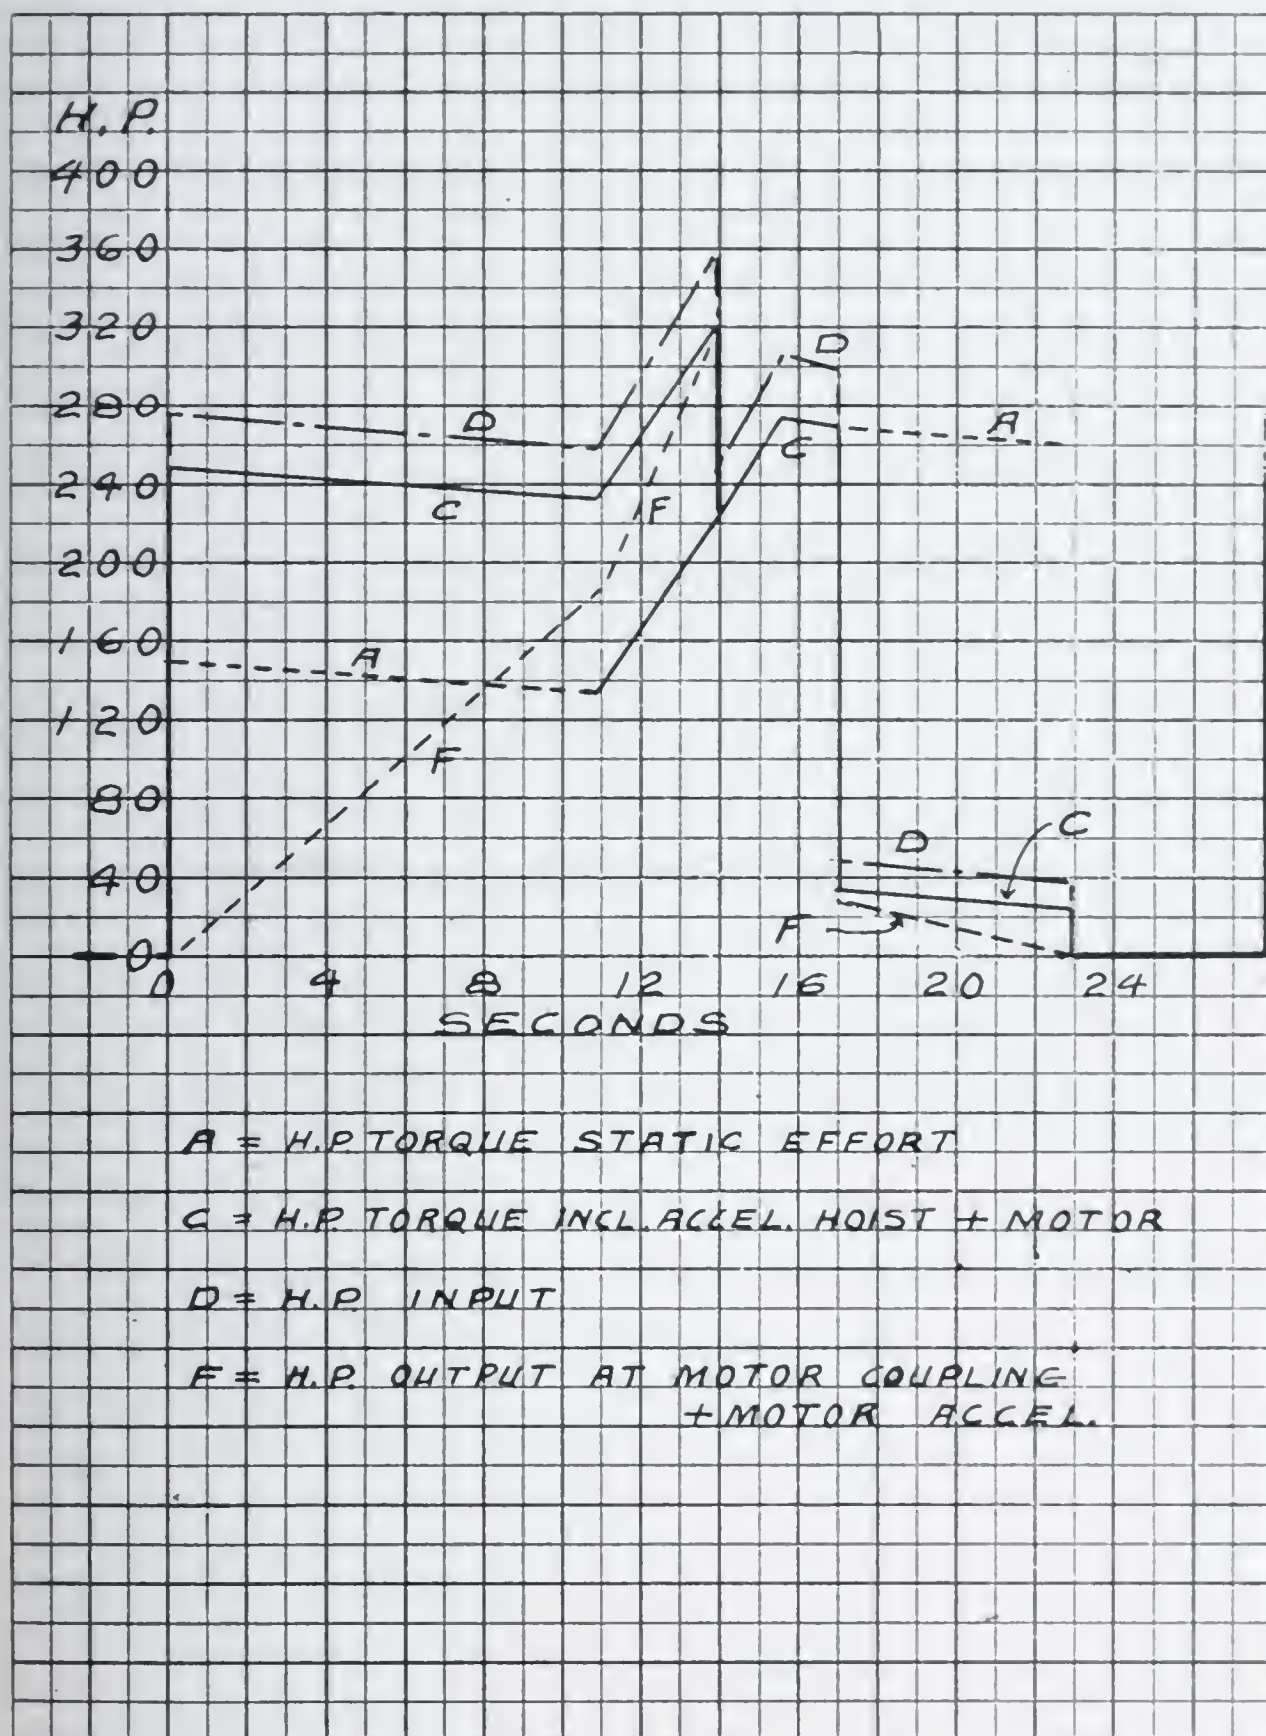 H.P.
400
360
320
280
240
200
160
120
80
40
0
D
C
A
F
F
D
C
A
D
C
F
0 4 8 12 16 20 24
SECONDS
A = H.P. TORQUE STATIC EFFORT
C = H.P. TORQUE INCL. ACCEL. HOIST + MOTOR
D = H.P. INPUT
F = H.P. OUTPUT AT MOTOR COUPLING
+ MOTOR ACCEL.